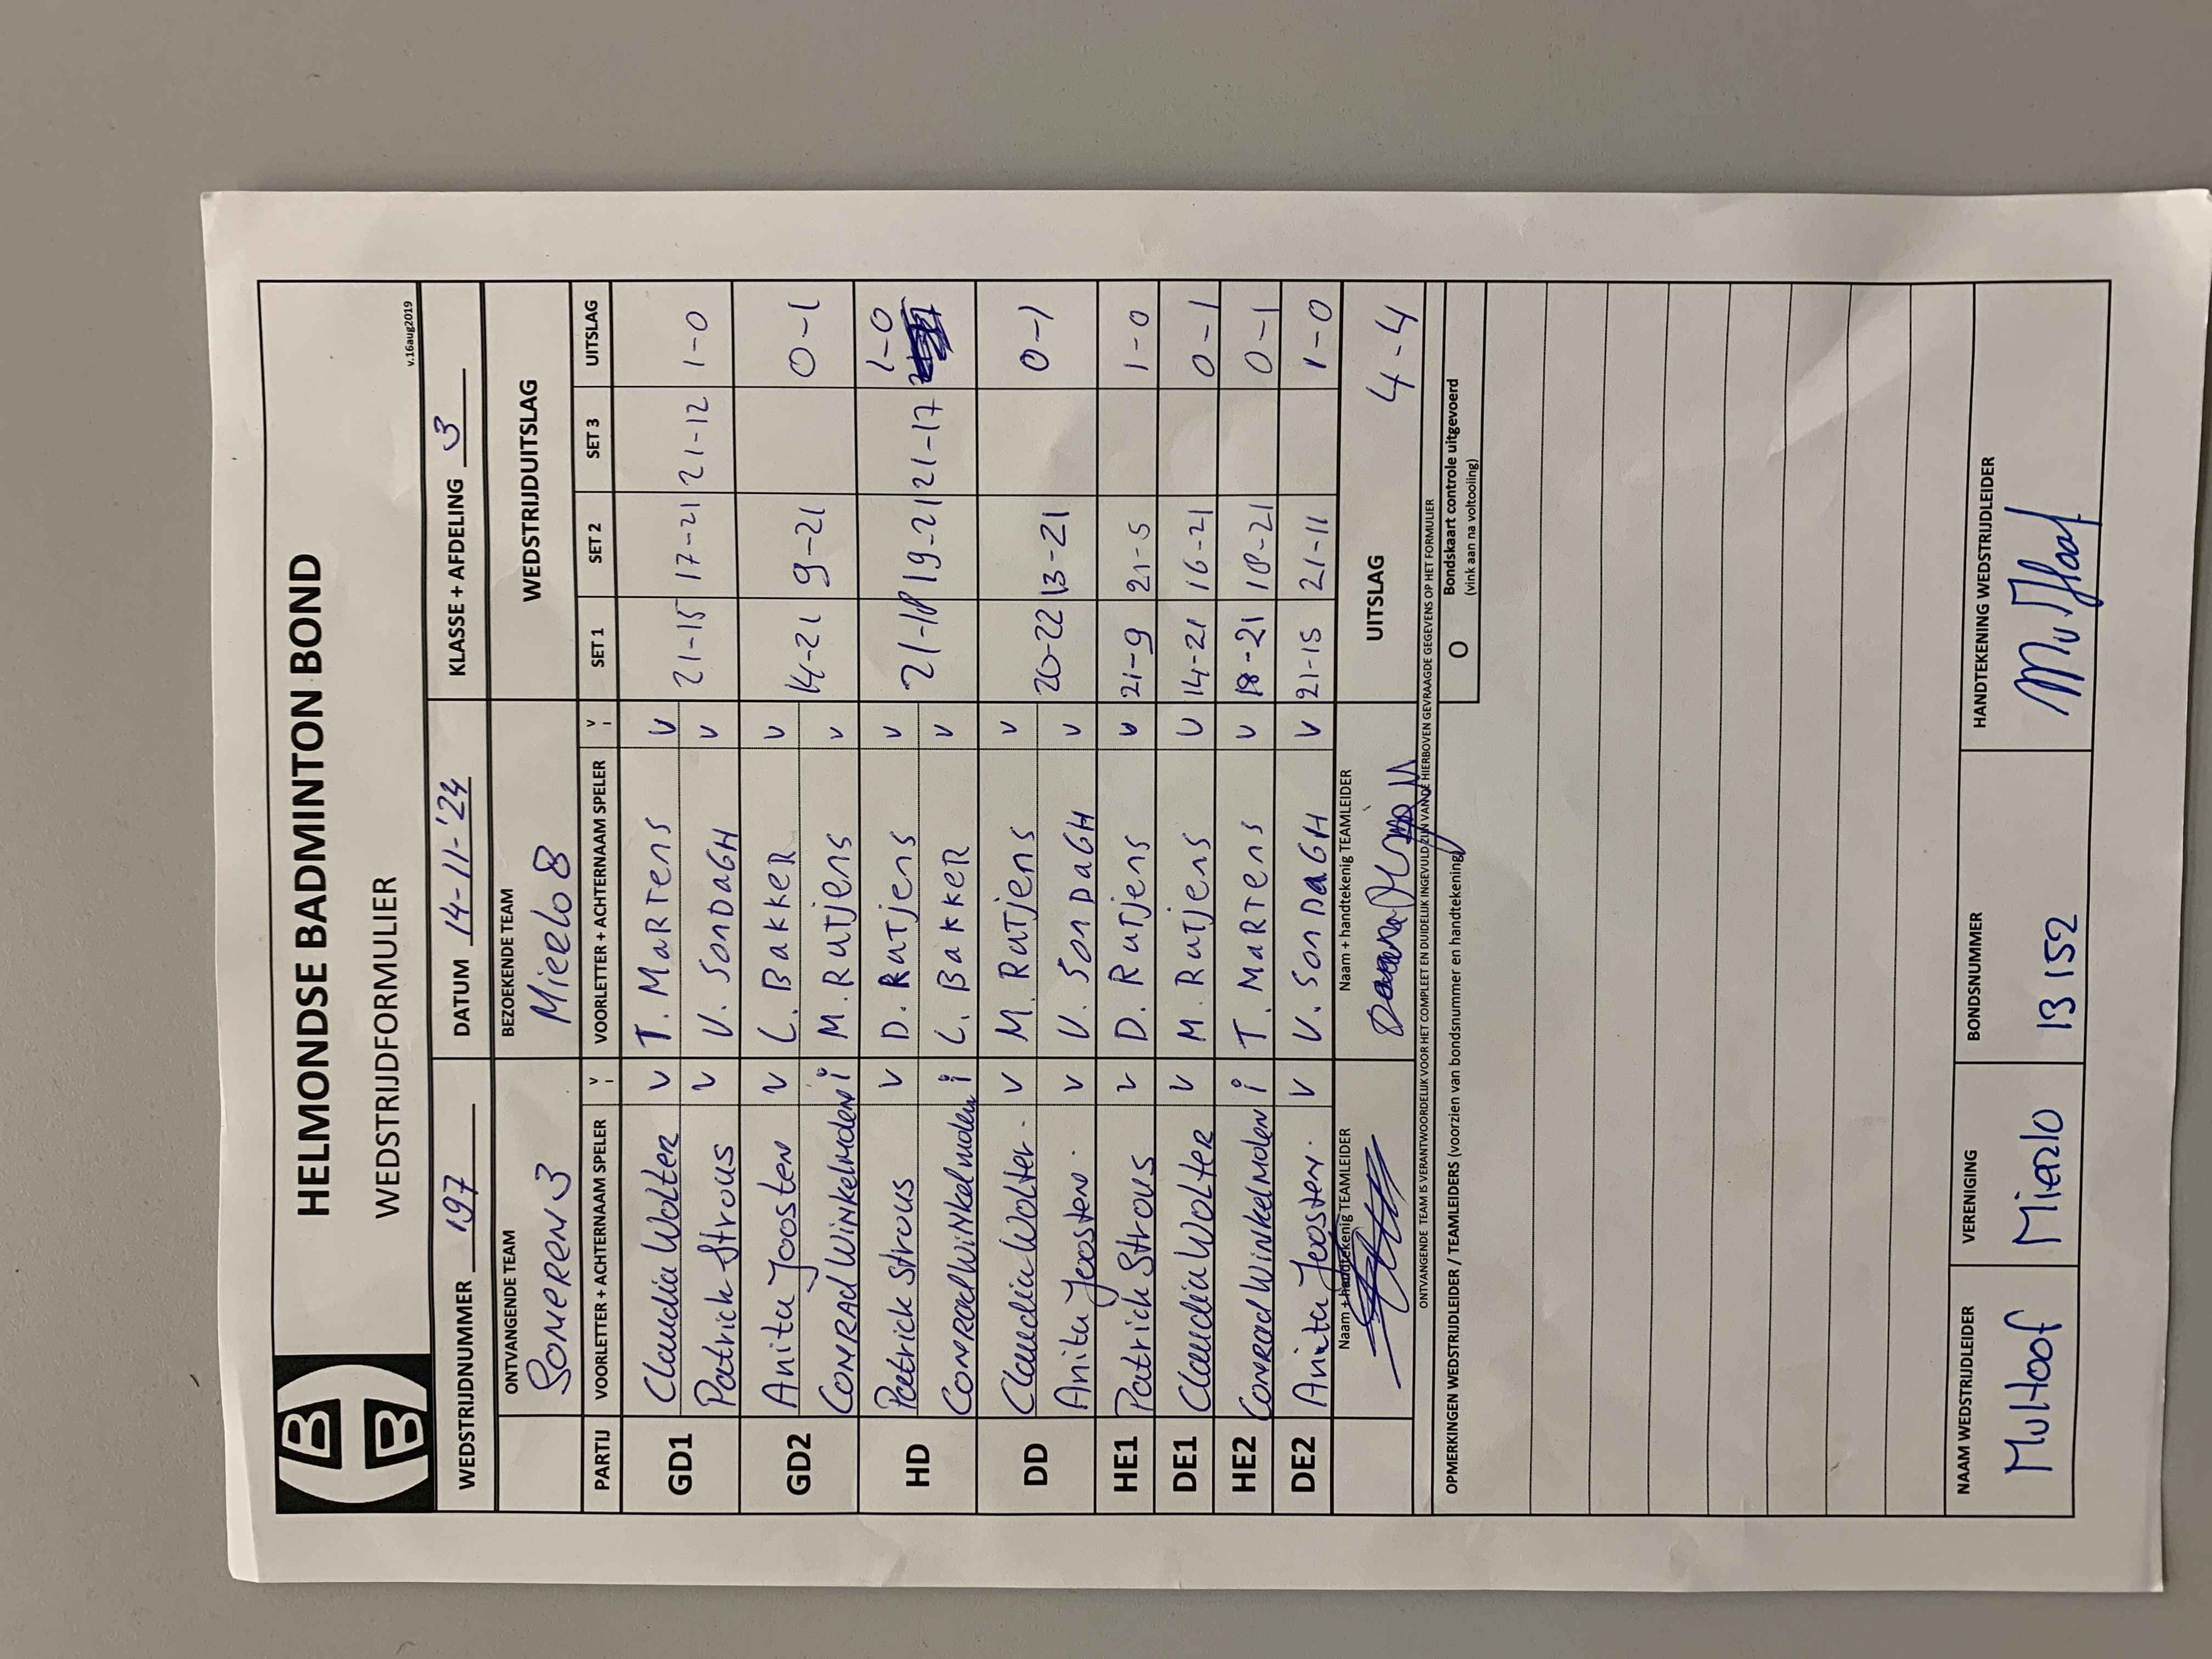 HELMONDSE BADMINTON BOND
WEDSTRIJDFORMULIER
v.16aug2019
WEDSTRIJDNUMMER 197 DATUM 14-11-'24 KLASSE + AFDELING 3
ONTVANGENDE TEAM BEZOEKENDE TEAM WEDSTRIJDUITSLAG
SOMEREN 3 Mierlo 8
PARTIJ VOORLETTER + ACHTERNAAM SPELER V I VOORLETTER + ACHTERNAAM SPELER V I SET 1 SET 2 SET 3 UITSLAG
GD1 Claudia Wolter v T. MaRTens v 21-15 17-21 21-12 1-0
Patrick Strous v V. SonDaGH v
GD2 Anita Joosten v L. BakkeR v 14-21 9-21 0-1
CONRAd WINkelmolen i M. RuTjens v
HD Patrick Strous v D. RuTjens v 21-18 19-21 21-17 1-0
Conrad Winkelmolen i L. BakkeR v
DD Claudia Wolter - v M. RuTjens v 20-22 13-21 0-1
Anita Joosten. v V. SonDaGH v
HE1 Patrick Strous v D. RuTjens v 21-9 21-5 1-0
DE1 Claudia WolteR v M. RuTjens v 14-21 16-21 0-1
HE2 Conrad Winkelmolen i T. MaRTens v 18-21 18-21 0-1
DE2 Anita Joosten. v V. SonDaGH v 21-15 21-11 1-0
Naam + handtekenig TEAMLEIDER Naam + handtekenig TEAMLEIDER UITSLAG 4-4
ONTVANGENDE TEAM IS VERANTWOORDELIJK VOOR HET COMPLEET EN DUIDELIJK INGEVULD ZIJN VAN DE HIERBOVEN GEVRAAGDE GEGEVENS OP HET FORMULIER
OPMERKINGEN WEDSTRIJDLEIDER / TEAMLEIDERS (voorzien van bondsnummer en handtekening) O Bondskaart controle uitgevoerd
(vink aan na voltooiing)
NAAM WEDSTRIJDLEIDER VERENIGING BONDSNUMMER HANDTEKENING WEDSTRIJDLEIDER
MvltHoof Mierlo 13152